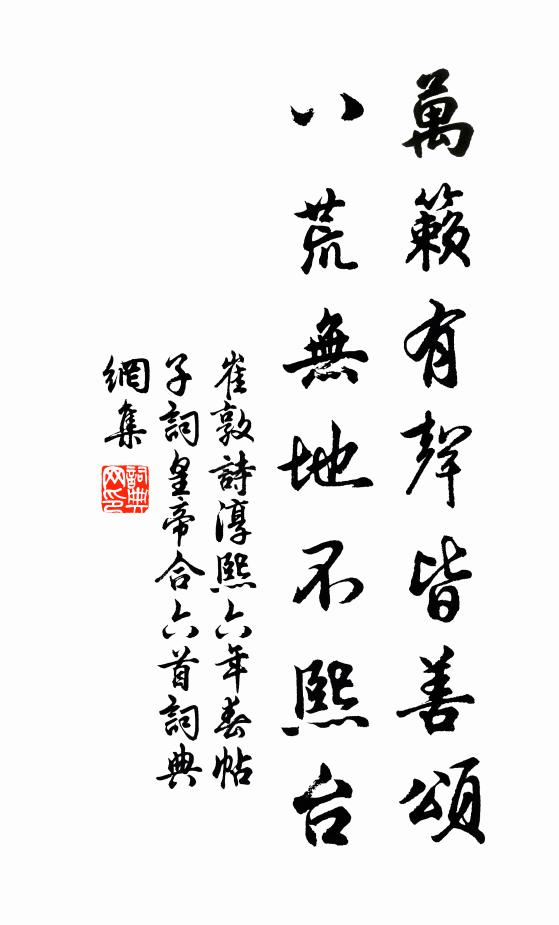 萬籟有聲皆善頌
八荒無地不熙台
崔敦詩淳熙六年春帖
子詞皇帝合六首詞典
網集
詞典
网印